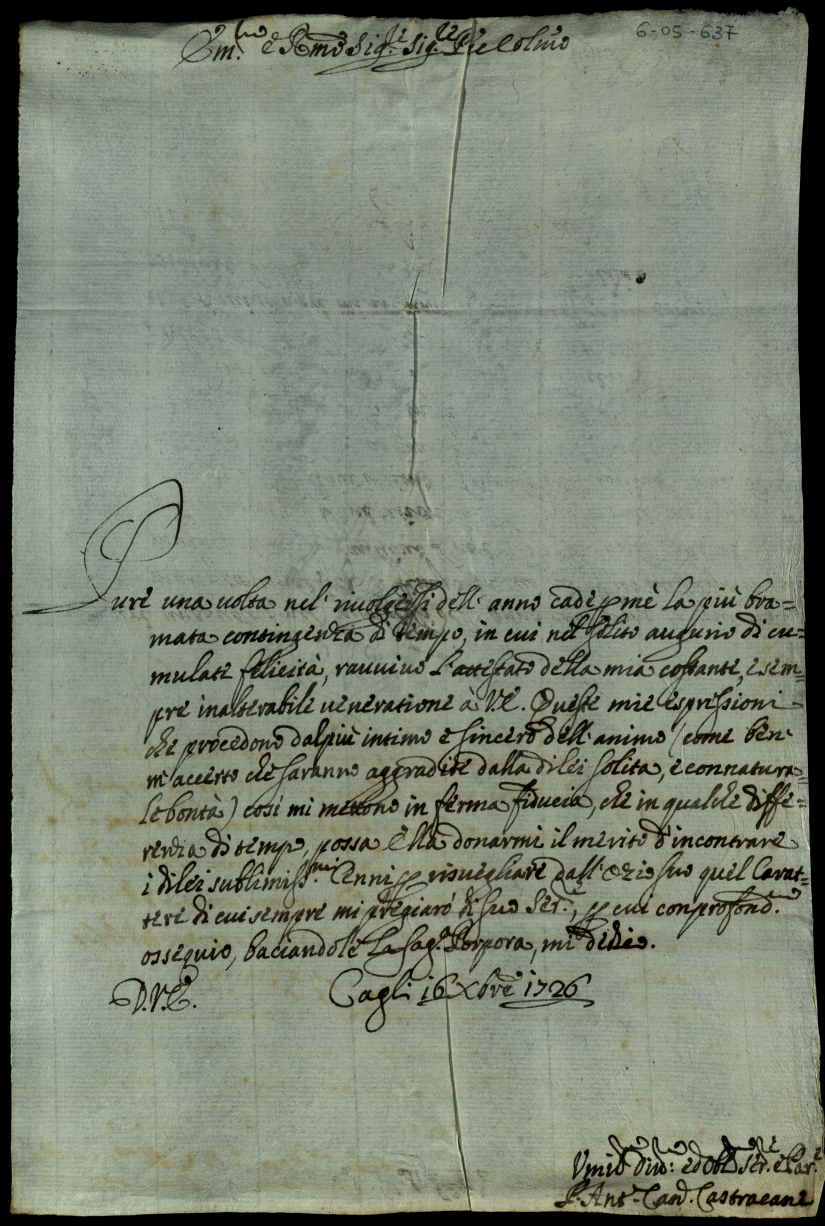 6-05-637
Em.mo e Rmo Sig.re Sig.re Pne Colmo
Pure una uolta nel' riuolgersi dell' anno cade per mè la più bra=
mata contingenza di tempo, in cui nel solito augurio di cu=
mulate felicità, rauuiuo l'attestato della mia costante, e sem=
pre inalterabile ueneratione à V.E. Queste mie espressioni
che procedono dal più intimo e sincero dell' animo (come ben'
m'accerto che saranno aggradite dalla di lei solita, e connatura=
le bontà) così mi mettono in ferma fiducia, che in qualche diffe=
renza di tempo, possa Ella donarmi il merito d'incontrare
i di lei sublimiss.mi Cenni per risuegliare dall' Ozio suo quel Carat=
tere di cui sempre mi pregiarò di suo Ser.re, per cui con profond.mo
ossequio, baciandole la Sag.a Porpora, mi dedico.
D.V.E. Cagli 16 Xbre 1726
Vmilmo Diuo: ed Obbmo Ser.re e
P. Ant.o Cand. Castracane